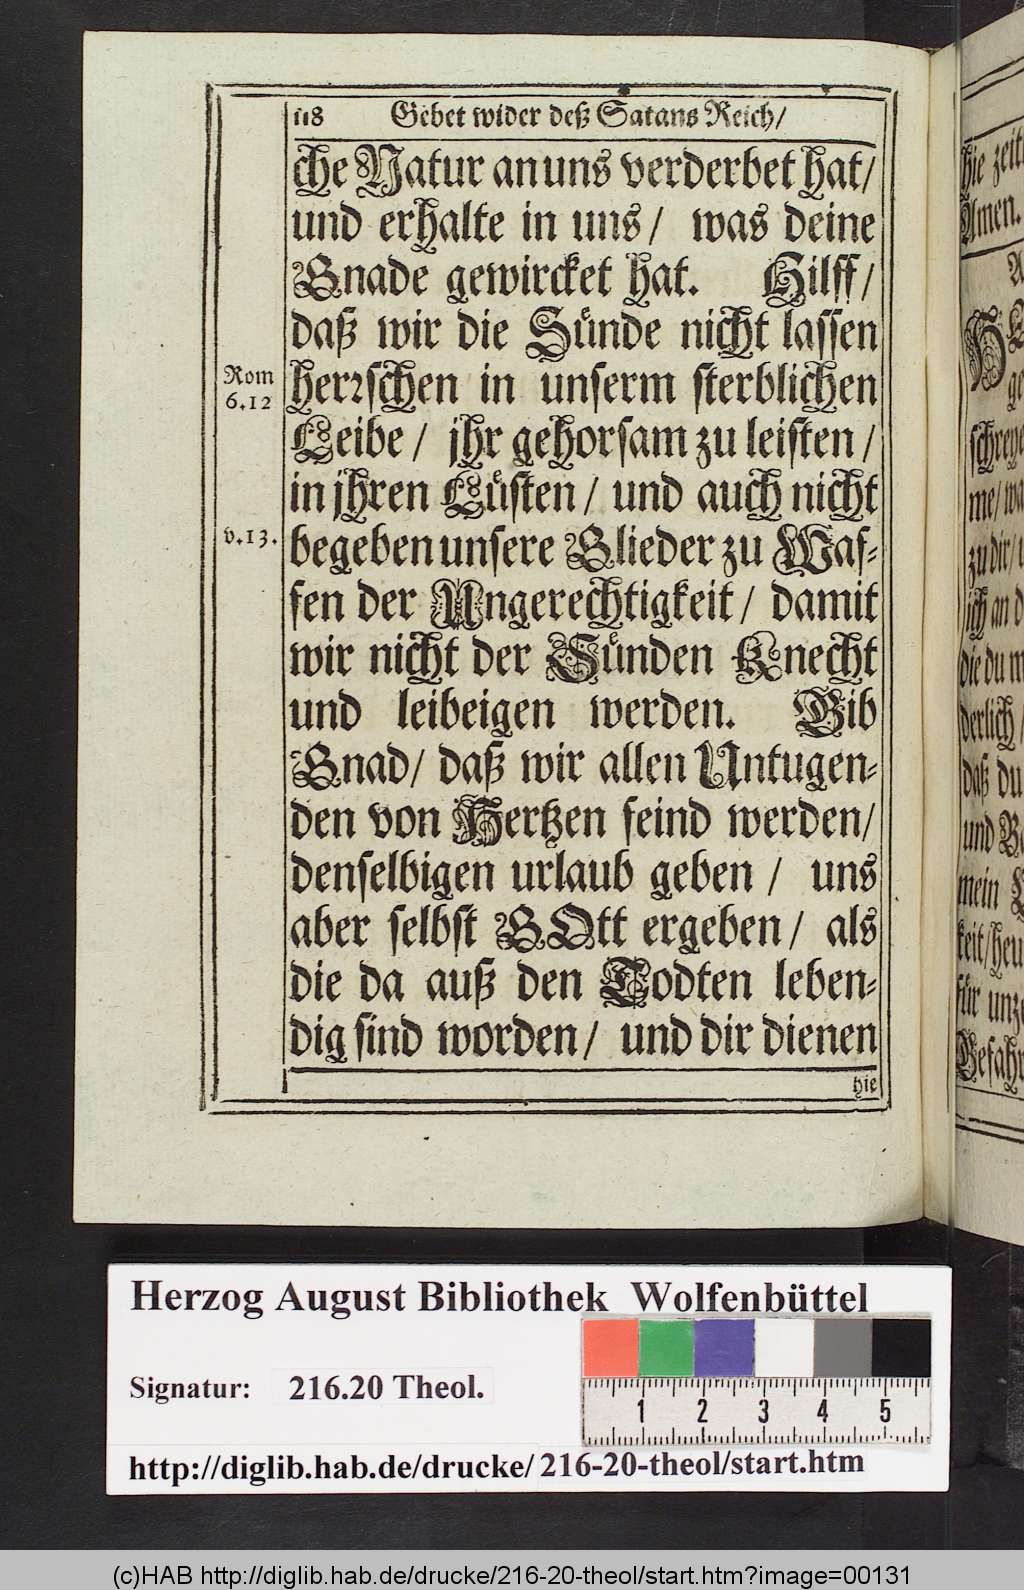 118 Gebet wider deß Satans Reich/
che Natur an uns verderbet hat/
und erhalte in uns/ was deine
Gnade gewircket hat. Hilff/
daß wir die Sünde nicht lassen
Rom
6.12
herrschen in unserm sterblichen
Leibe/ jhr gehorsam zu leisten/
in jhren Lüsten/ und auch nicht
v.13.
begeben unsere Glieder zu Waf-
fen der Ungerechtigkeit/ damit
wir nicht der Sünden Knecht
und leibeigen werden. Gib
Gnad/ daß wir allen Untugen-
den von Hertzen feind werden/
denselbigen urlaub geben/ uns
aber selbst GOtt ergeben/ als
die da auß den Todten leben-
dig sind worden/ und dir dienen
hie
hie zeit
Amen.
A
ge
schreye
me/ wa
zu dir/
sich an d
die du m
derlich/
daß du
und
mein
keit/ heu
für unz
Gefahr
Herzog August Bibliothek Wolfenbüttel
Signatur: 216.20 Theol.
1 2 3 4 5
http://diglib.hab.de/drucke/216-20-theol/start.htm
(c)HAB http://diglib.hab.de/drucke/216-20-theol/start.htm?image=00131